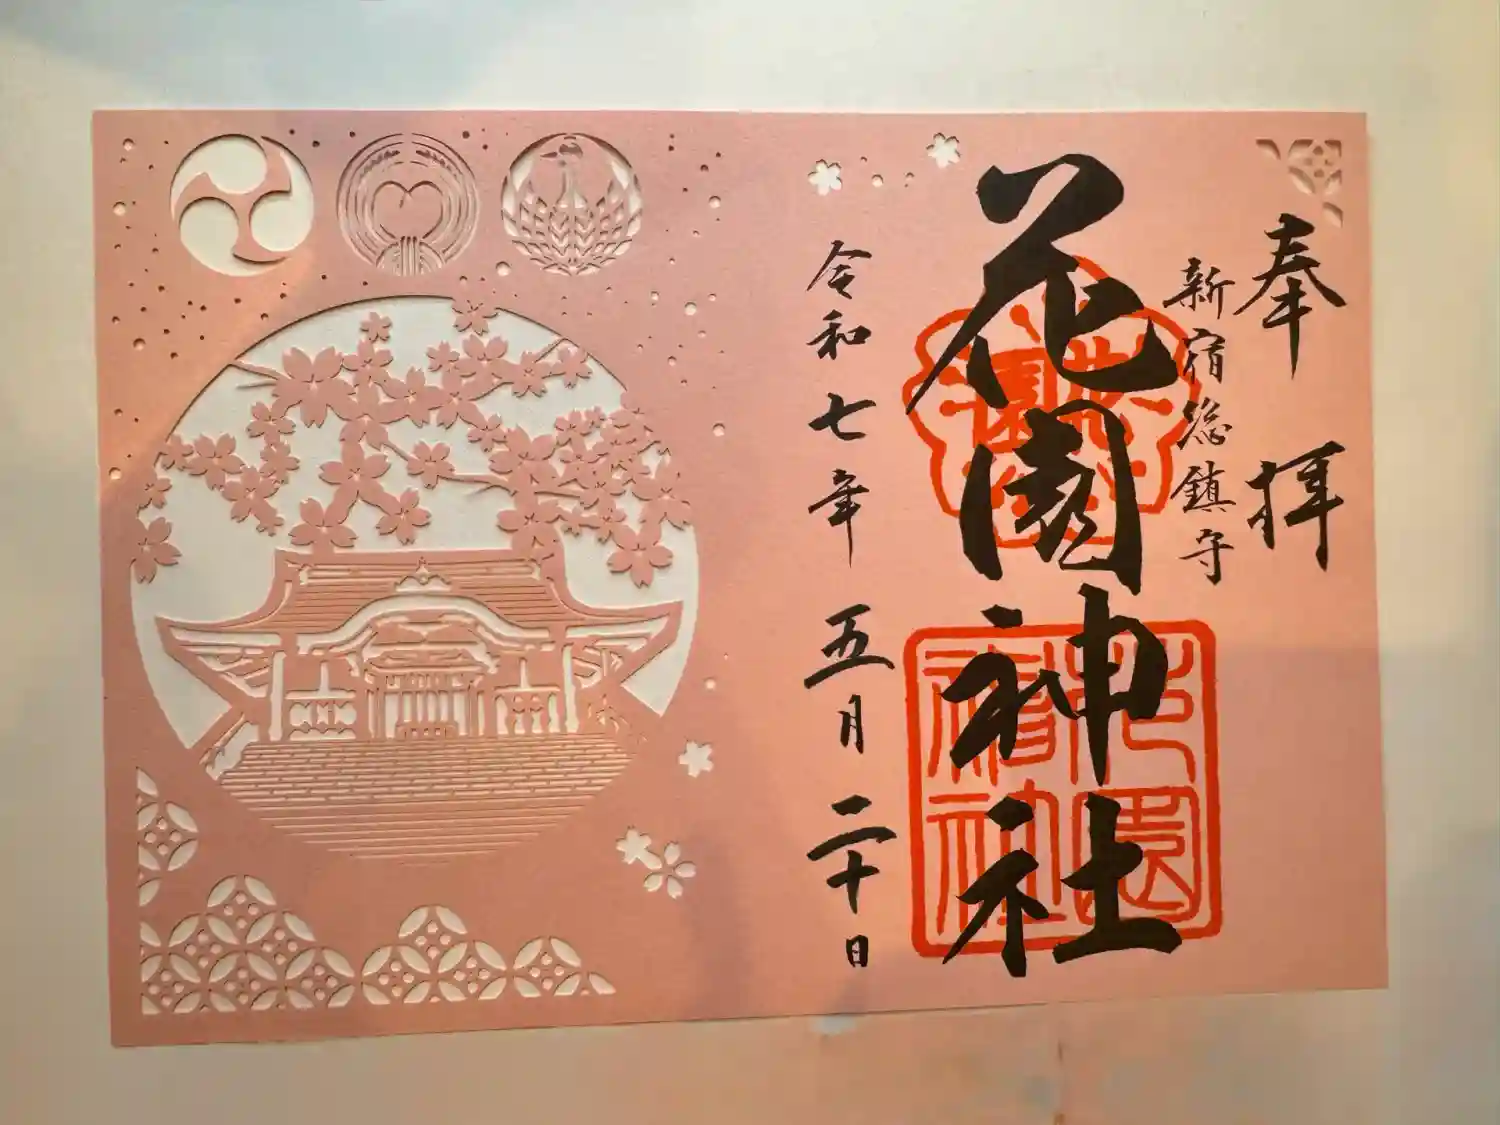 奉拝
新宿総鎮守
花園神社
令和七年五月二十日
花園
花園神社